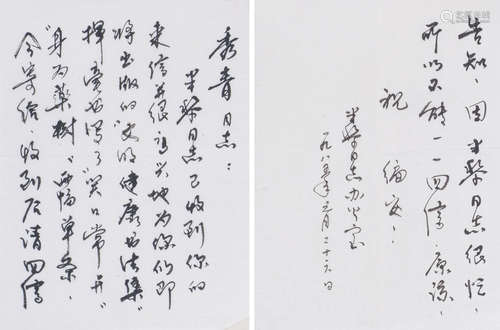 秀青同志：
半黎同志已收到你的
来信并很高兴地为你们即
将出版的"文明健康书法集"
挥毫书写了"笑口常开"
"身为药树"两幅单条，
今寄给，收到后请回信
告知，因半黎同志很忙，
所以不能一一回信，原谅。
祝
编安！
半黎同志办公室
一九八五年三月二十六日